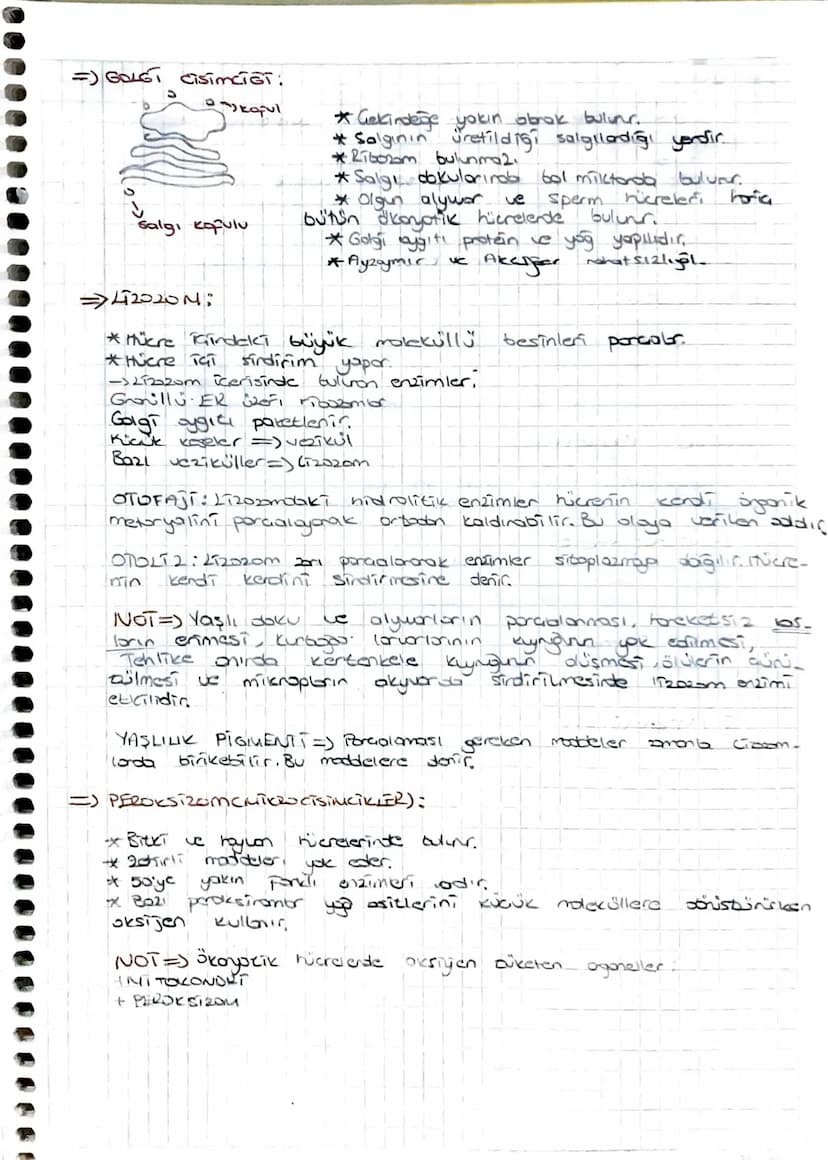 => GOLGİ CİSİMCİĞİ:
→ koful
* Çekirdeğe yakın olarak bulunur.
* Salgının üretildiği salgılandığı yerdir.
* Ribozom bulunmaz.
* Salgı dokularında bol miktarda bulunur.
* Olgun alyuvar ve sperm hücreleri hariç
bütün ökaryotik hücrelerde bulunur.
Salgı kofulu
* Golgi aygıtı protein ve yağ yapılıdır.
* Ayzaymır ve Akciğer rahatsızlığı.
=> LİZOZOM:
* Hücre içindeki büyük moleküllü besinleri parçalar.
* Hücre içi sindirim yapar.
→ Lizozom içerisinde bulunan enzimler;
Granüllü ER üzeri ribozomlar
Golgi aygıtı paketlenir.
Küçük keseler => vezikül
Bazı veziküller => Lizozom
OTOFAJİ: Lizozomdaki hidrolitik enzimler hücrenin kendi organik
metaryalini parçalayarak ortadan kaldırabilir. Bu olaya verilen addır.
OTOLİZ: Lizozom zarı parçalanarak enzimler sitoplazmaya dağılır. Hücre-
nin kendi kendini sindirmesine denir.
NOT => Yaşlı doku ve alyuvarların parçalanması, hareketsiz kas-
ların erimesi, kurbağa larvalarının kuyruğunun yok edilmesi,
Tehlike anında kertenkele kuyruğunun düşmesi, ölülerin çürü-
tülmesi ve mikropların akyuvarda sindirilmesinde lizozom enzimi
etkilidir.
YAŞLILIK PİGMENTİ => Parçalanması gereken maddeler zamanla lizozom-
larda birikebilir. Bu maddelere denir.
=> PEROKSİZOM(MİKROCİSİMCİKLER):
* Bitki ve hayvan hücrelerinde bulunur.
* Zehirli maddeleri yok eder.
* 50'ye yakın farklı enzimeri vadır.
* Bazı peroksizomlar yağ asitlerini küçük moleküllere dönüştürürken
oksijen kullanır.
NOT => Ökaryotik hücrelerde oksijen tüketen organeller:
+ MİTOKONDRİ
+ PEROKSİZOM